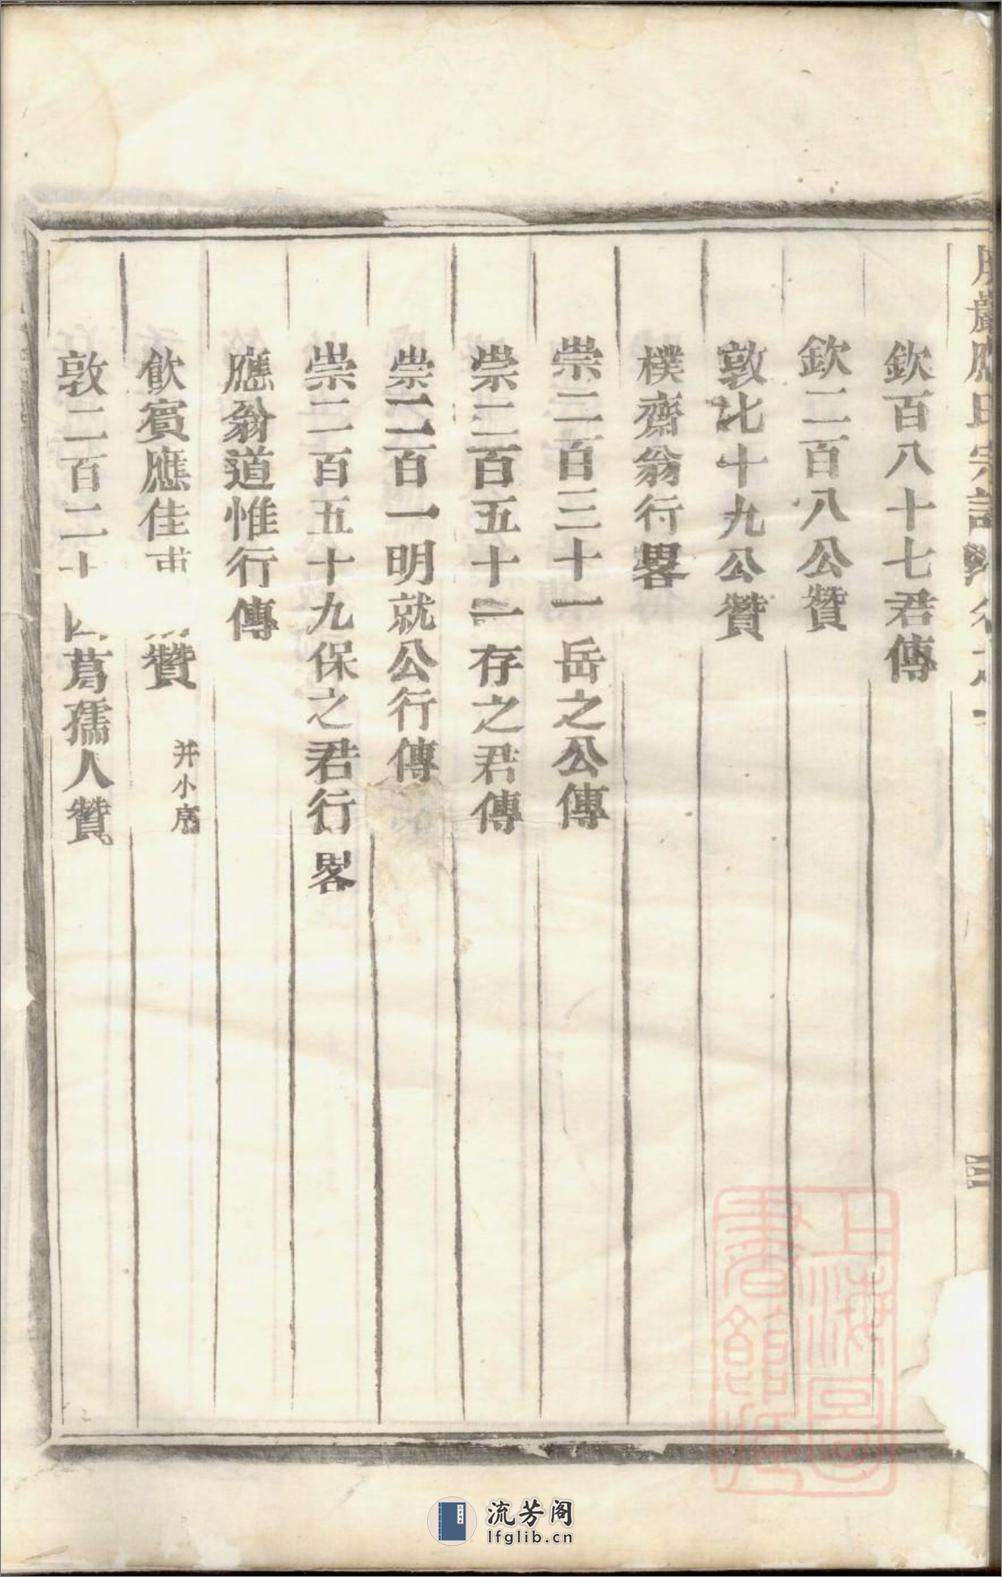 應氏宗譜
欽百八十七君傳
欽二百八公贊
敦七十九公贊
樸齋翁行畧
崇二百三十一岳之公傳
崇二百五十一存之君傳
崇二百一明就公行傳
崇二百五十九保之君行畧
應翁道惟行傳
飲賓應佳贊 并小序
敦二百二十四葛孺人贊
上海圖書館藏
流芳阁
lfglib.cn